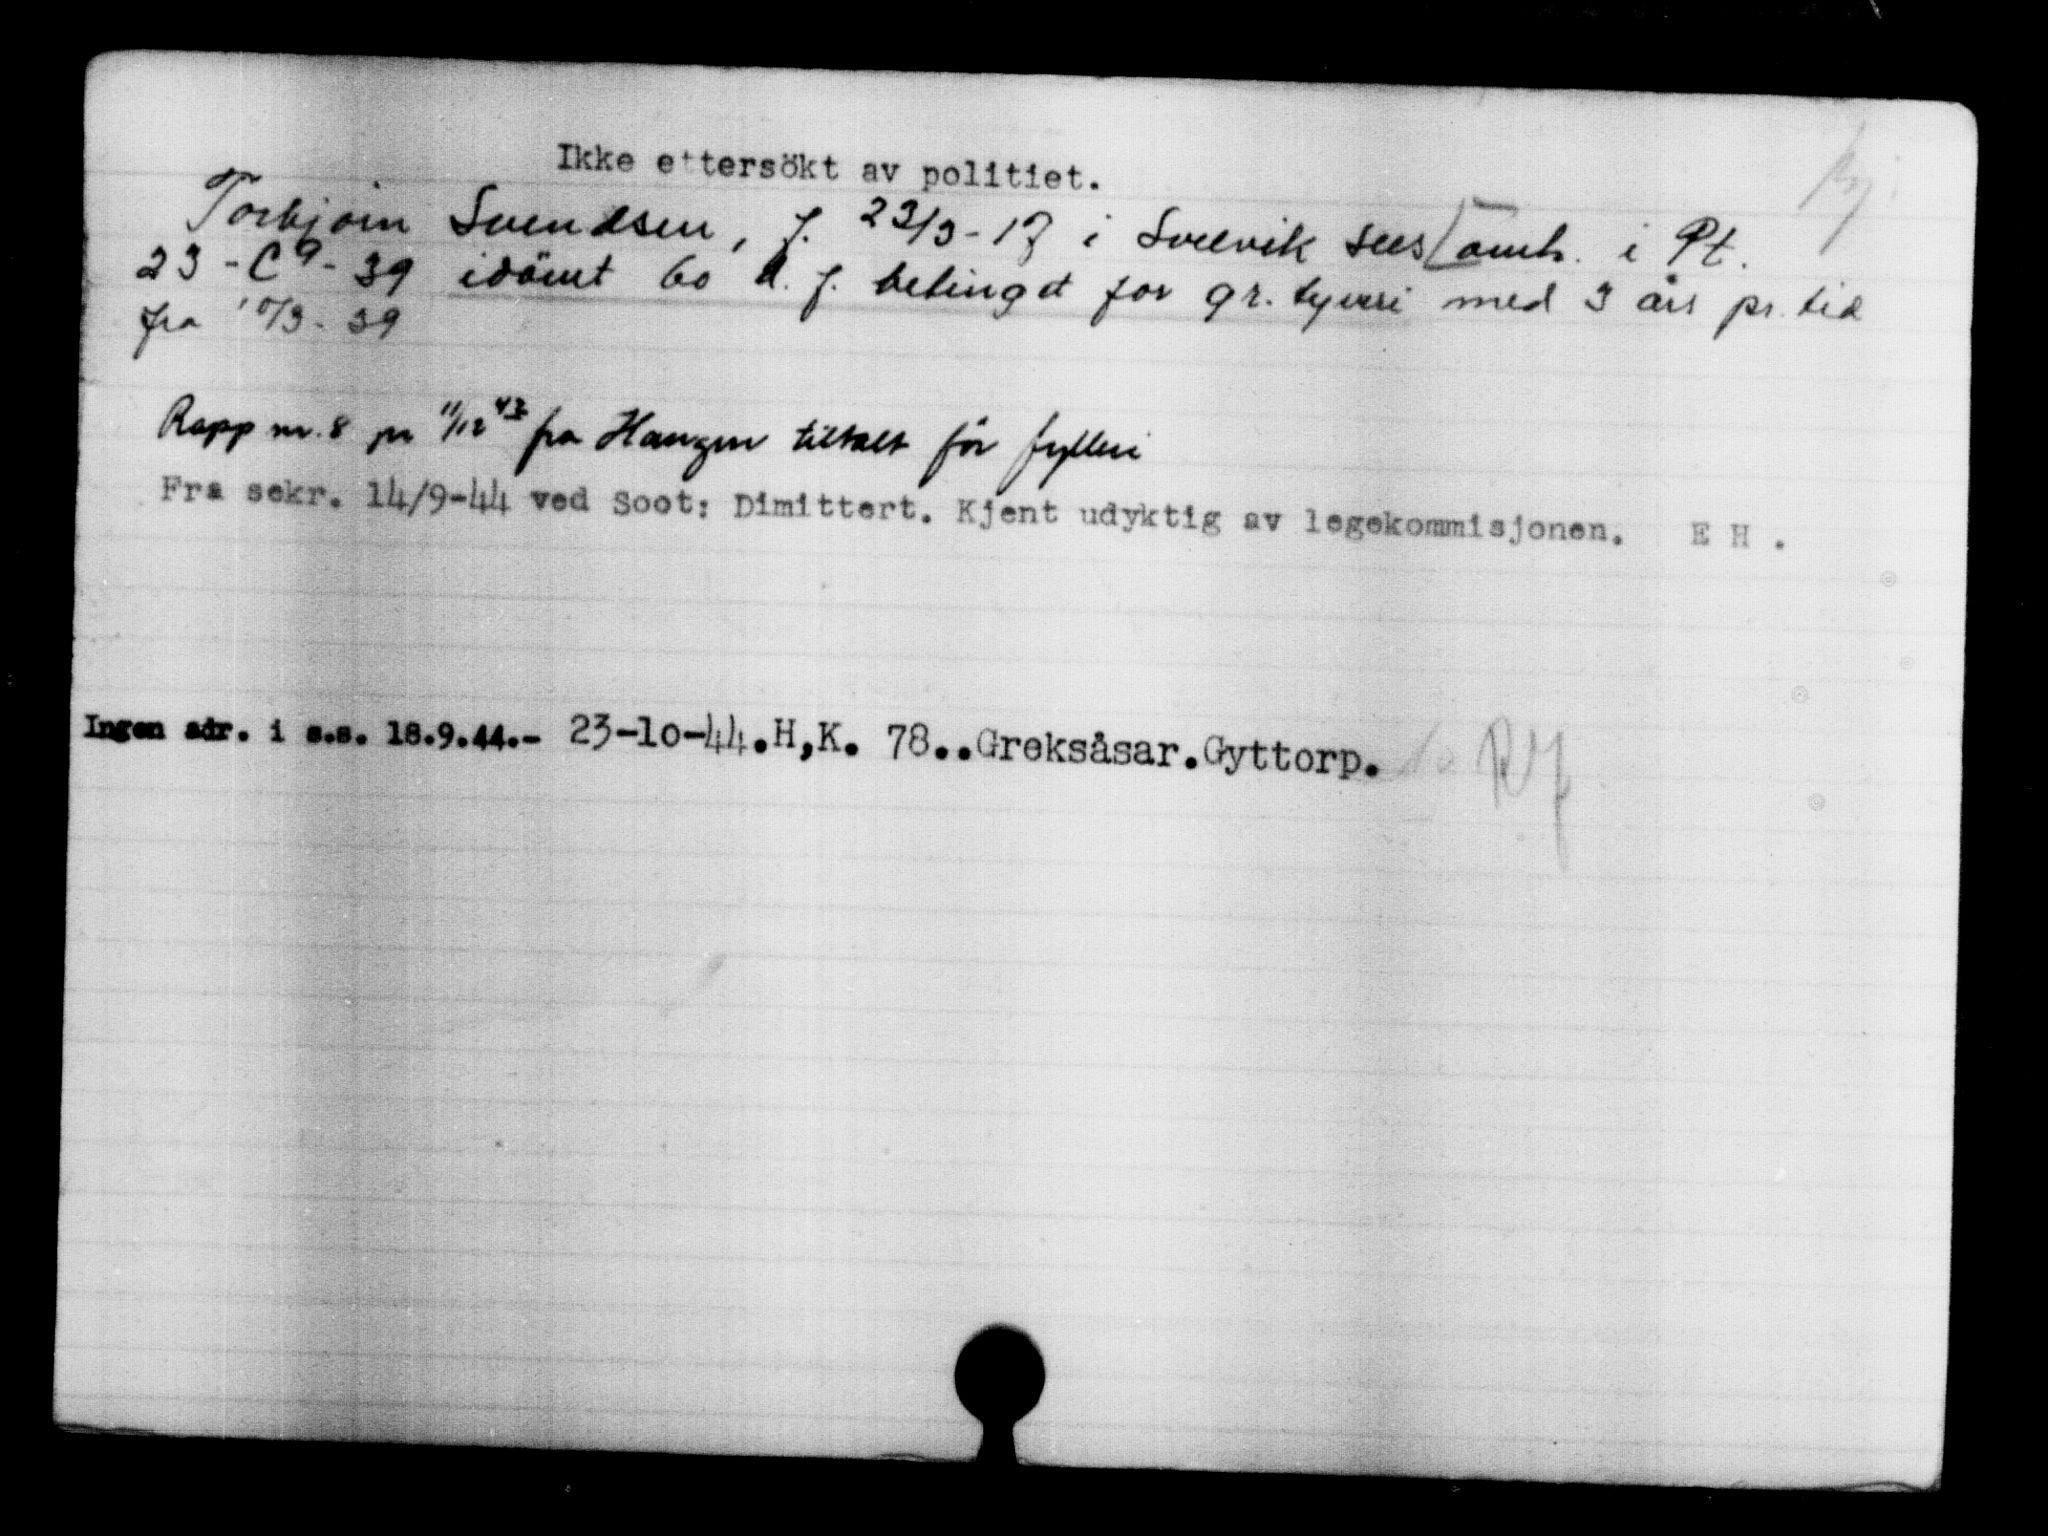 Ikke ettersökt av politiet.
Torbjörn Svendsen, f. 23/3-17 i Svelvik sees omh. i Pt.
23-C9-39 idömt 60 d. f. betinget for gr. tyveri med 3 års pr. tid
fra 10/3-39
Rapp nr. 8 pr 11/12 43 fra Hangen tiltalt för fylleri
Fra sekr. 14/9-44 ved Soot: Dimittert. Kjent udyktig av legekommisjonen. E H .
Ingen adr. i s.s. 18.9.44.- 23-1o-44.H,K. 78..Greksåsar.Gyttorp.